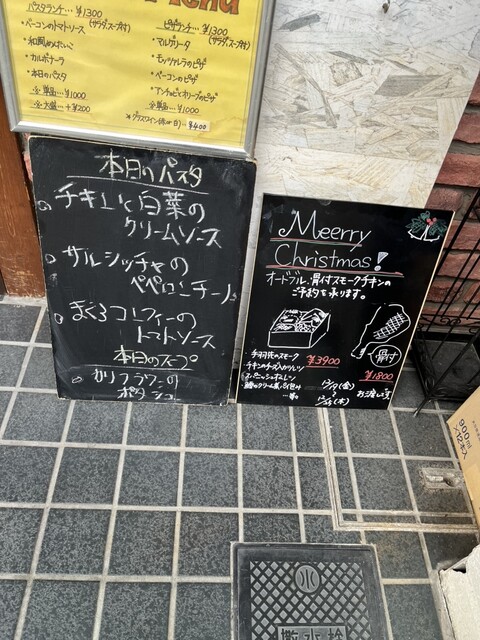 Menu
パスタランチ… ¥1300
(サラダ、スープ付)
・ベーコンのトマトソース
・和風めんたいこ
・カルボナーラ
・本日のパスタ
☆単品… ¥1000
☆大盛… +¥200
ピザランチ… ¥1300
(サラダ、スープ付)
・マルゲリータ
・モッツァレラのピザ
・ベーコンのピザ
・アンチョビとオリーブのピザ
☆単品… ¥1000
★グラスワイン(赤or白)… ¥400
本日のパスタ
チキンと白菜の
クリームソース
サルシッチャの
ペペロンチーノ
まぐろコンフィーの
トマトソース
本日のスープ
カリフラワーの
ポタージュ
Meerry
Christmas!
オードブル、骨付スモークチキンの
ご予約を承ります。
¥3900
チキンのチーズ入りカツレツ
スパニッシュオムレツ
骨付
¥1800
12/19(金)
12/25(木)
お渡し
900ml
×12本入
散水栓